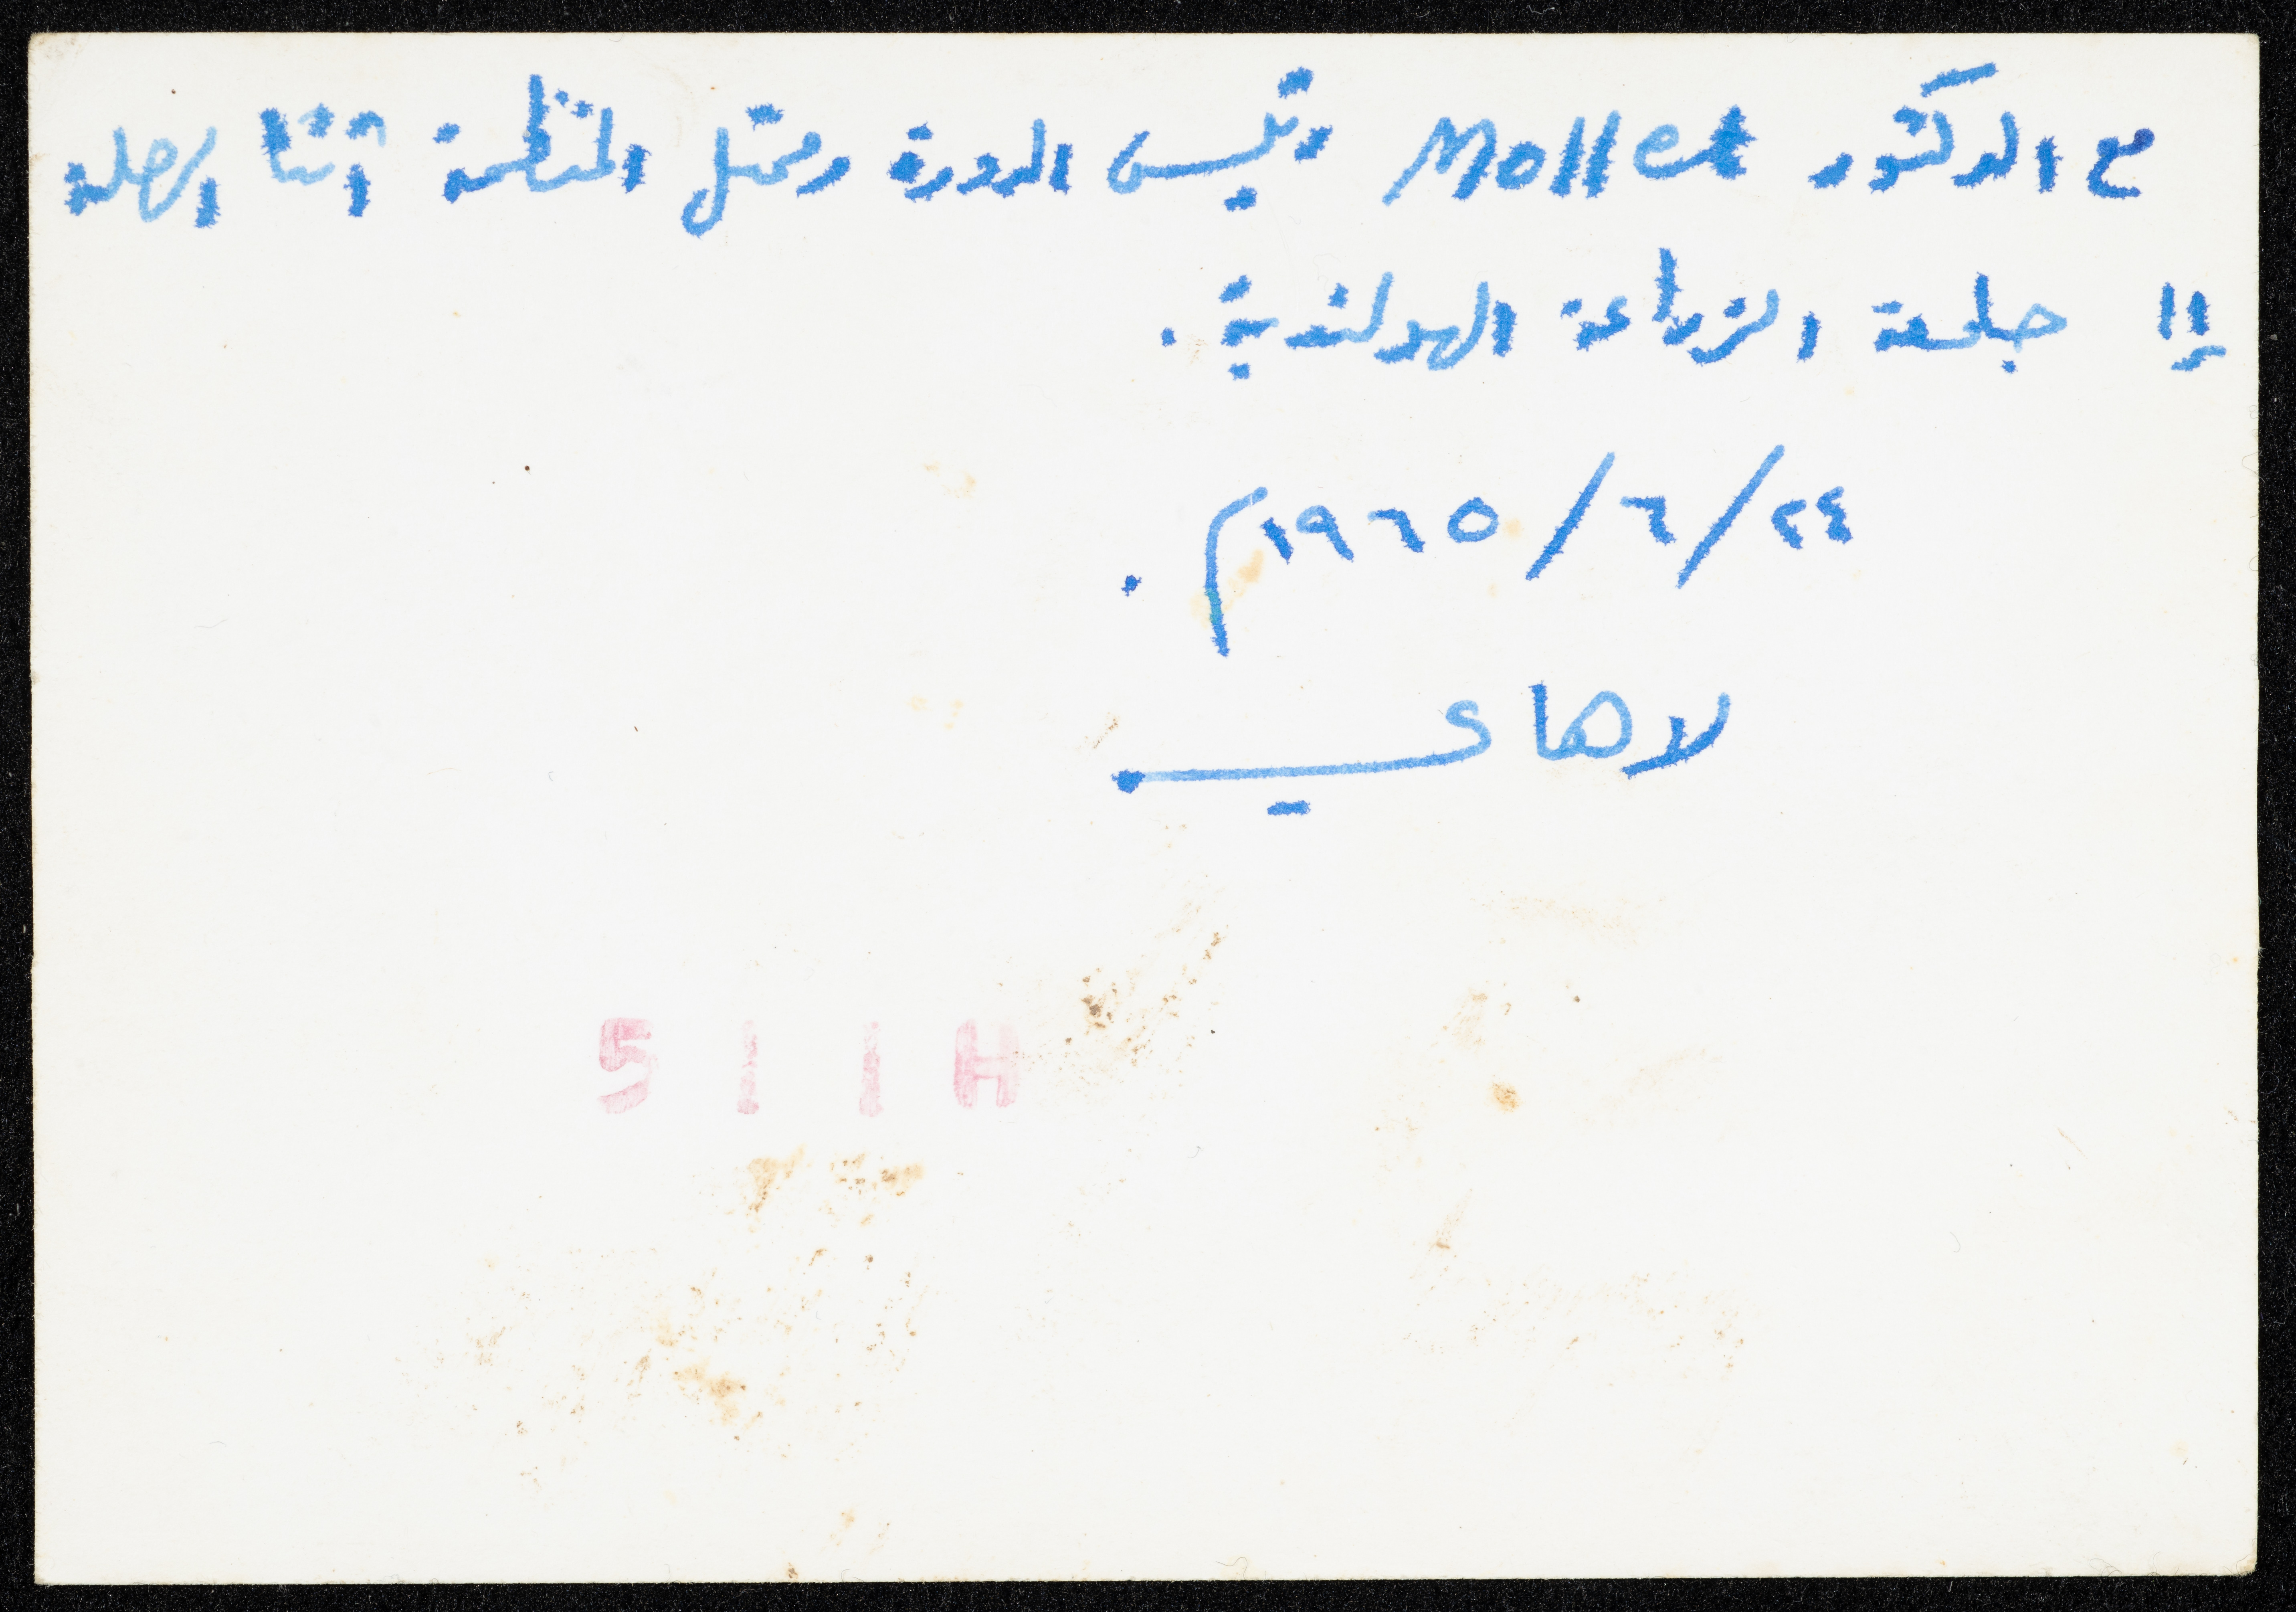 مع الدكتور Mollet رئيس الدورة وممثل المنظمة أثنا الرحلة
إلى جامعة الزراعة الهولندية.
٢٤/٦/١٩٦٥م.
لاهاي
5 1 1 H